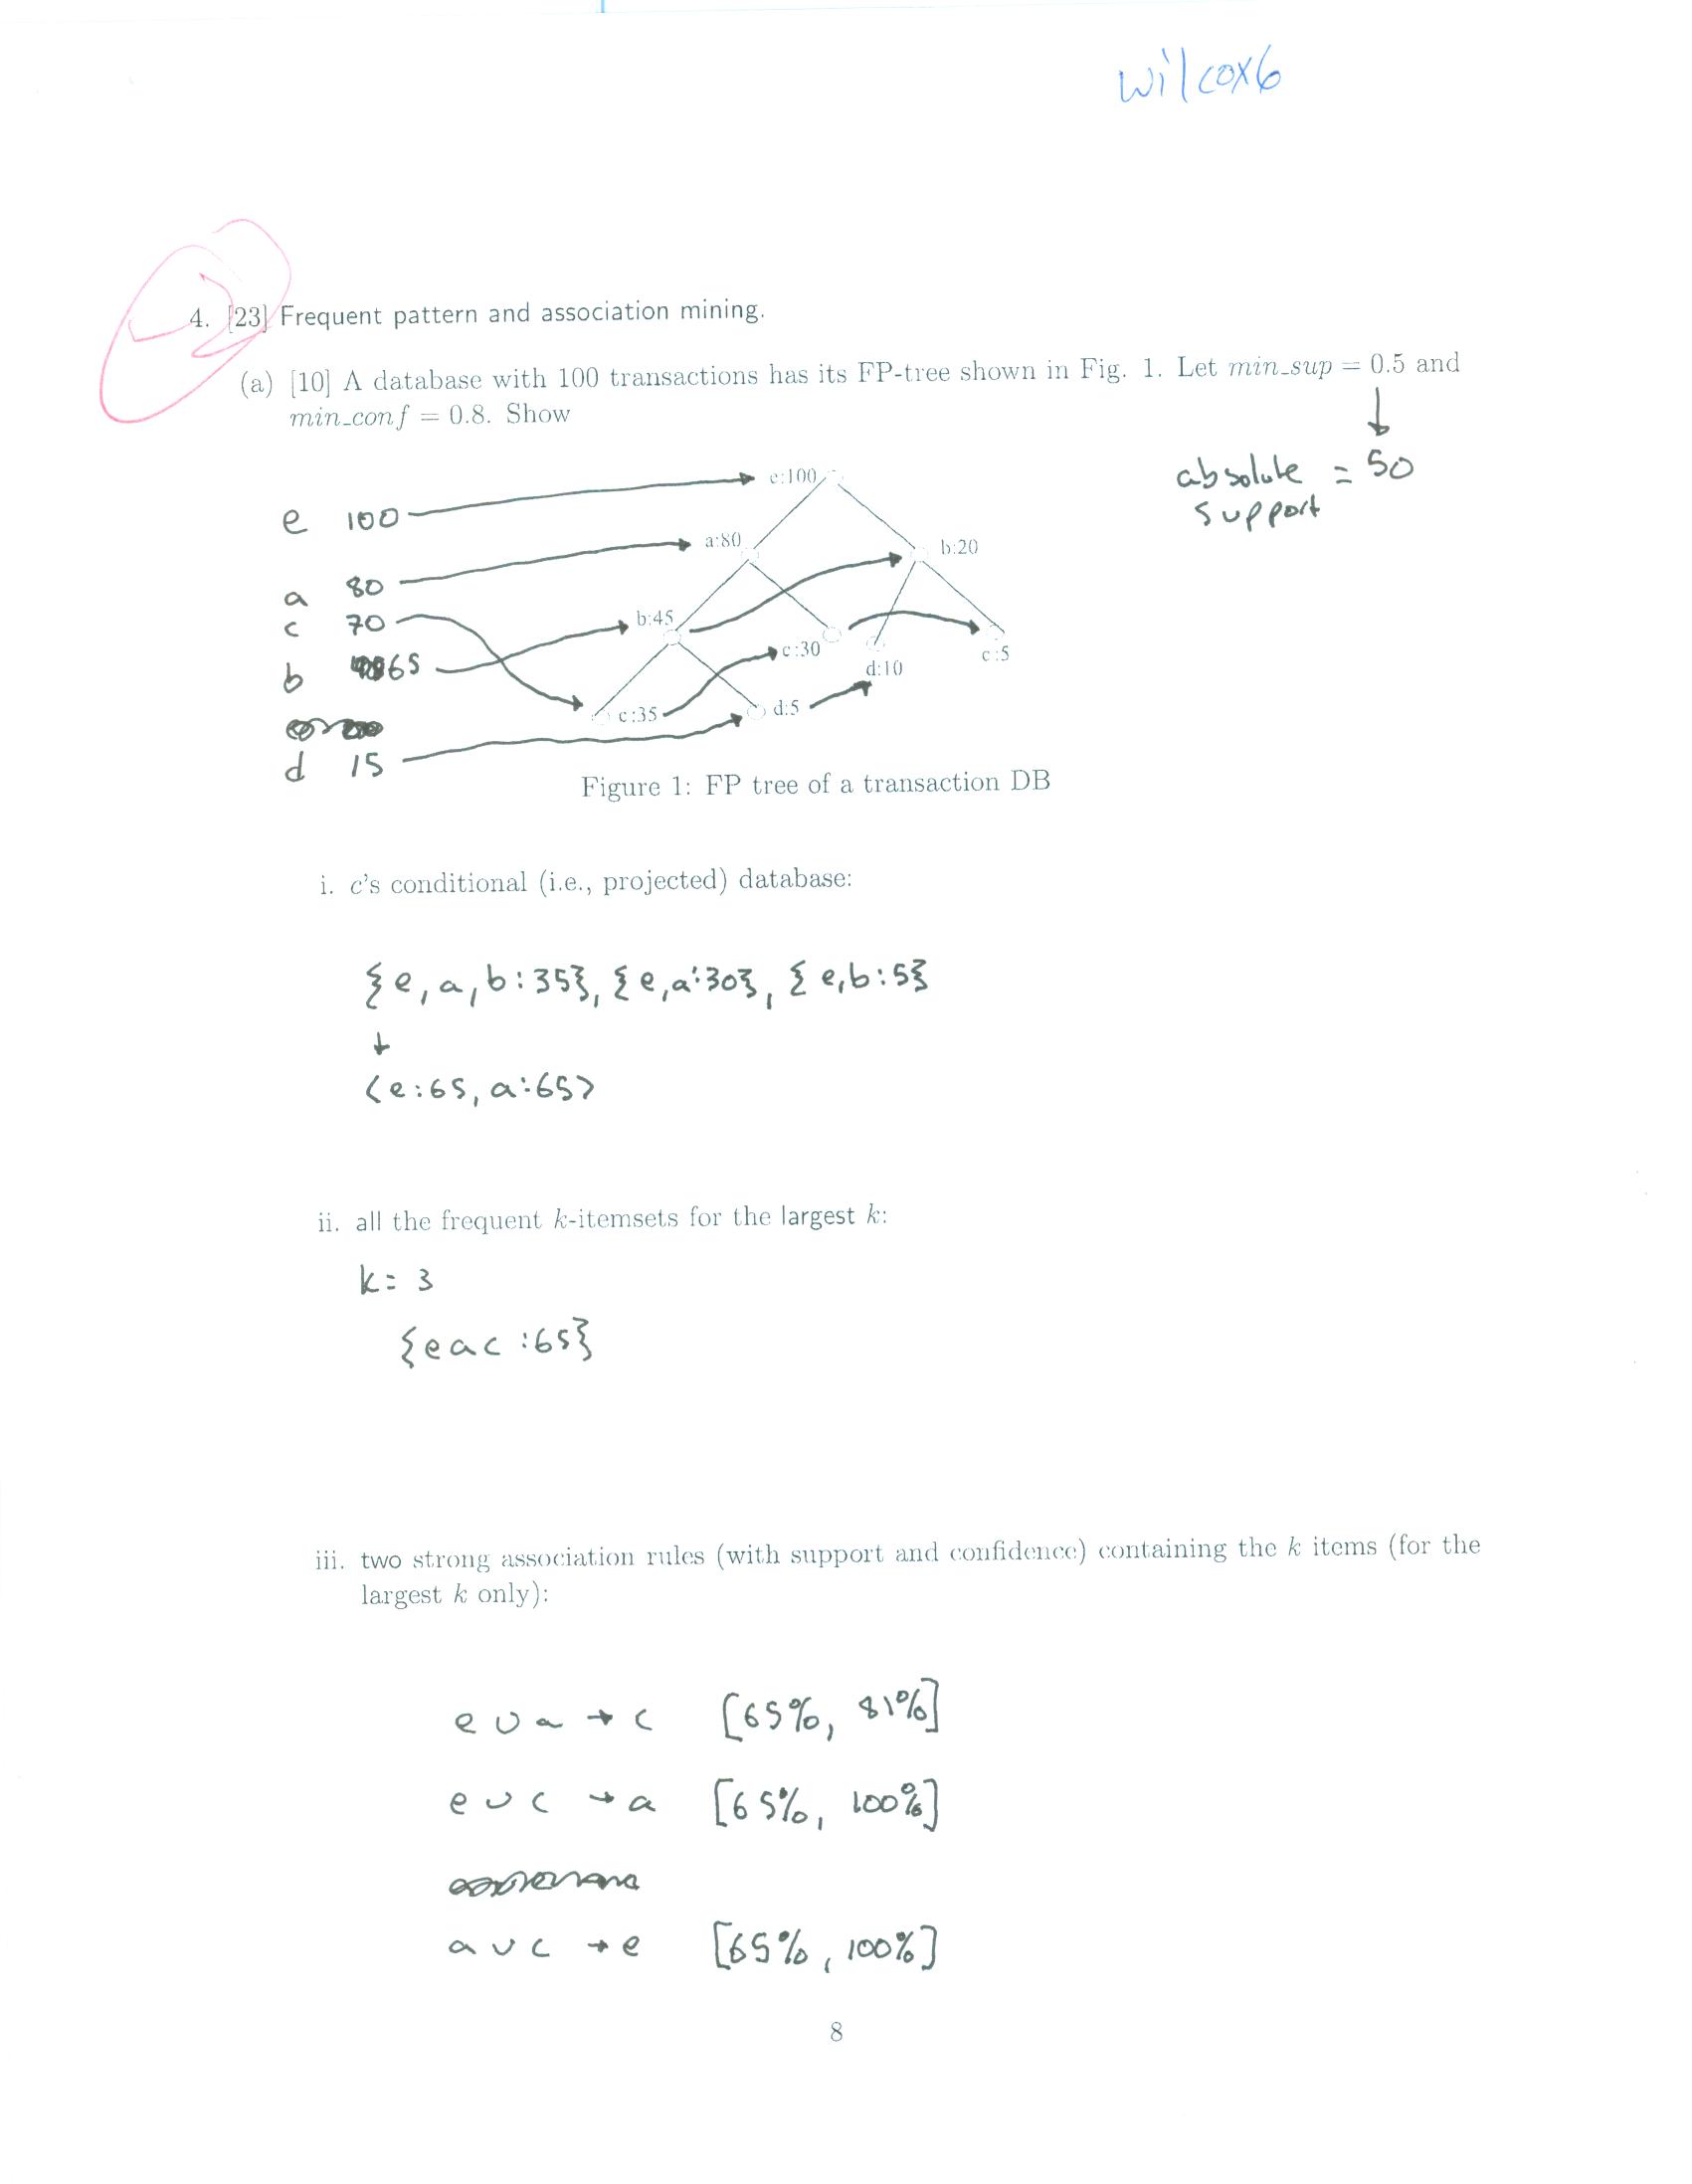 wilcox6
4. [23] Frequent pattern and association mining.
(a) [10] A database with 100 transactions has its FP-tree shown in Fig. 1. Let min_sup = 0.5 and
min_conf = 0.8. Show
absolute = 50
support
e:100
e 100
a:80
b:20
a 80
c 70
b:45
c:30
c:5
b 65
d:10
c:35
d:5
d 15
Figure 1: FP tree of a transaction DB
i. c's conditional (i.e., projected) database:
{e,a,b:35}, {e,a:30}, {e,b:5}
↓
<e:65, a:65>
ii. all the frequent k-itemsets for the largest k:
k = 3
{eac :65}
iii. two strong association rules (with support and confidence) containing the k items (for the
largest k only):
e ∪ a → c [65%, 81%]
e ∪ c → a [65%, 100%]
a ∪ c → e [65%, 100%]
8